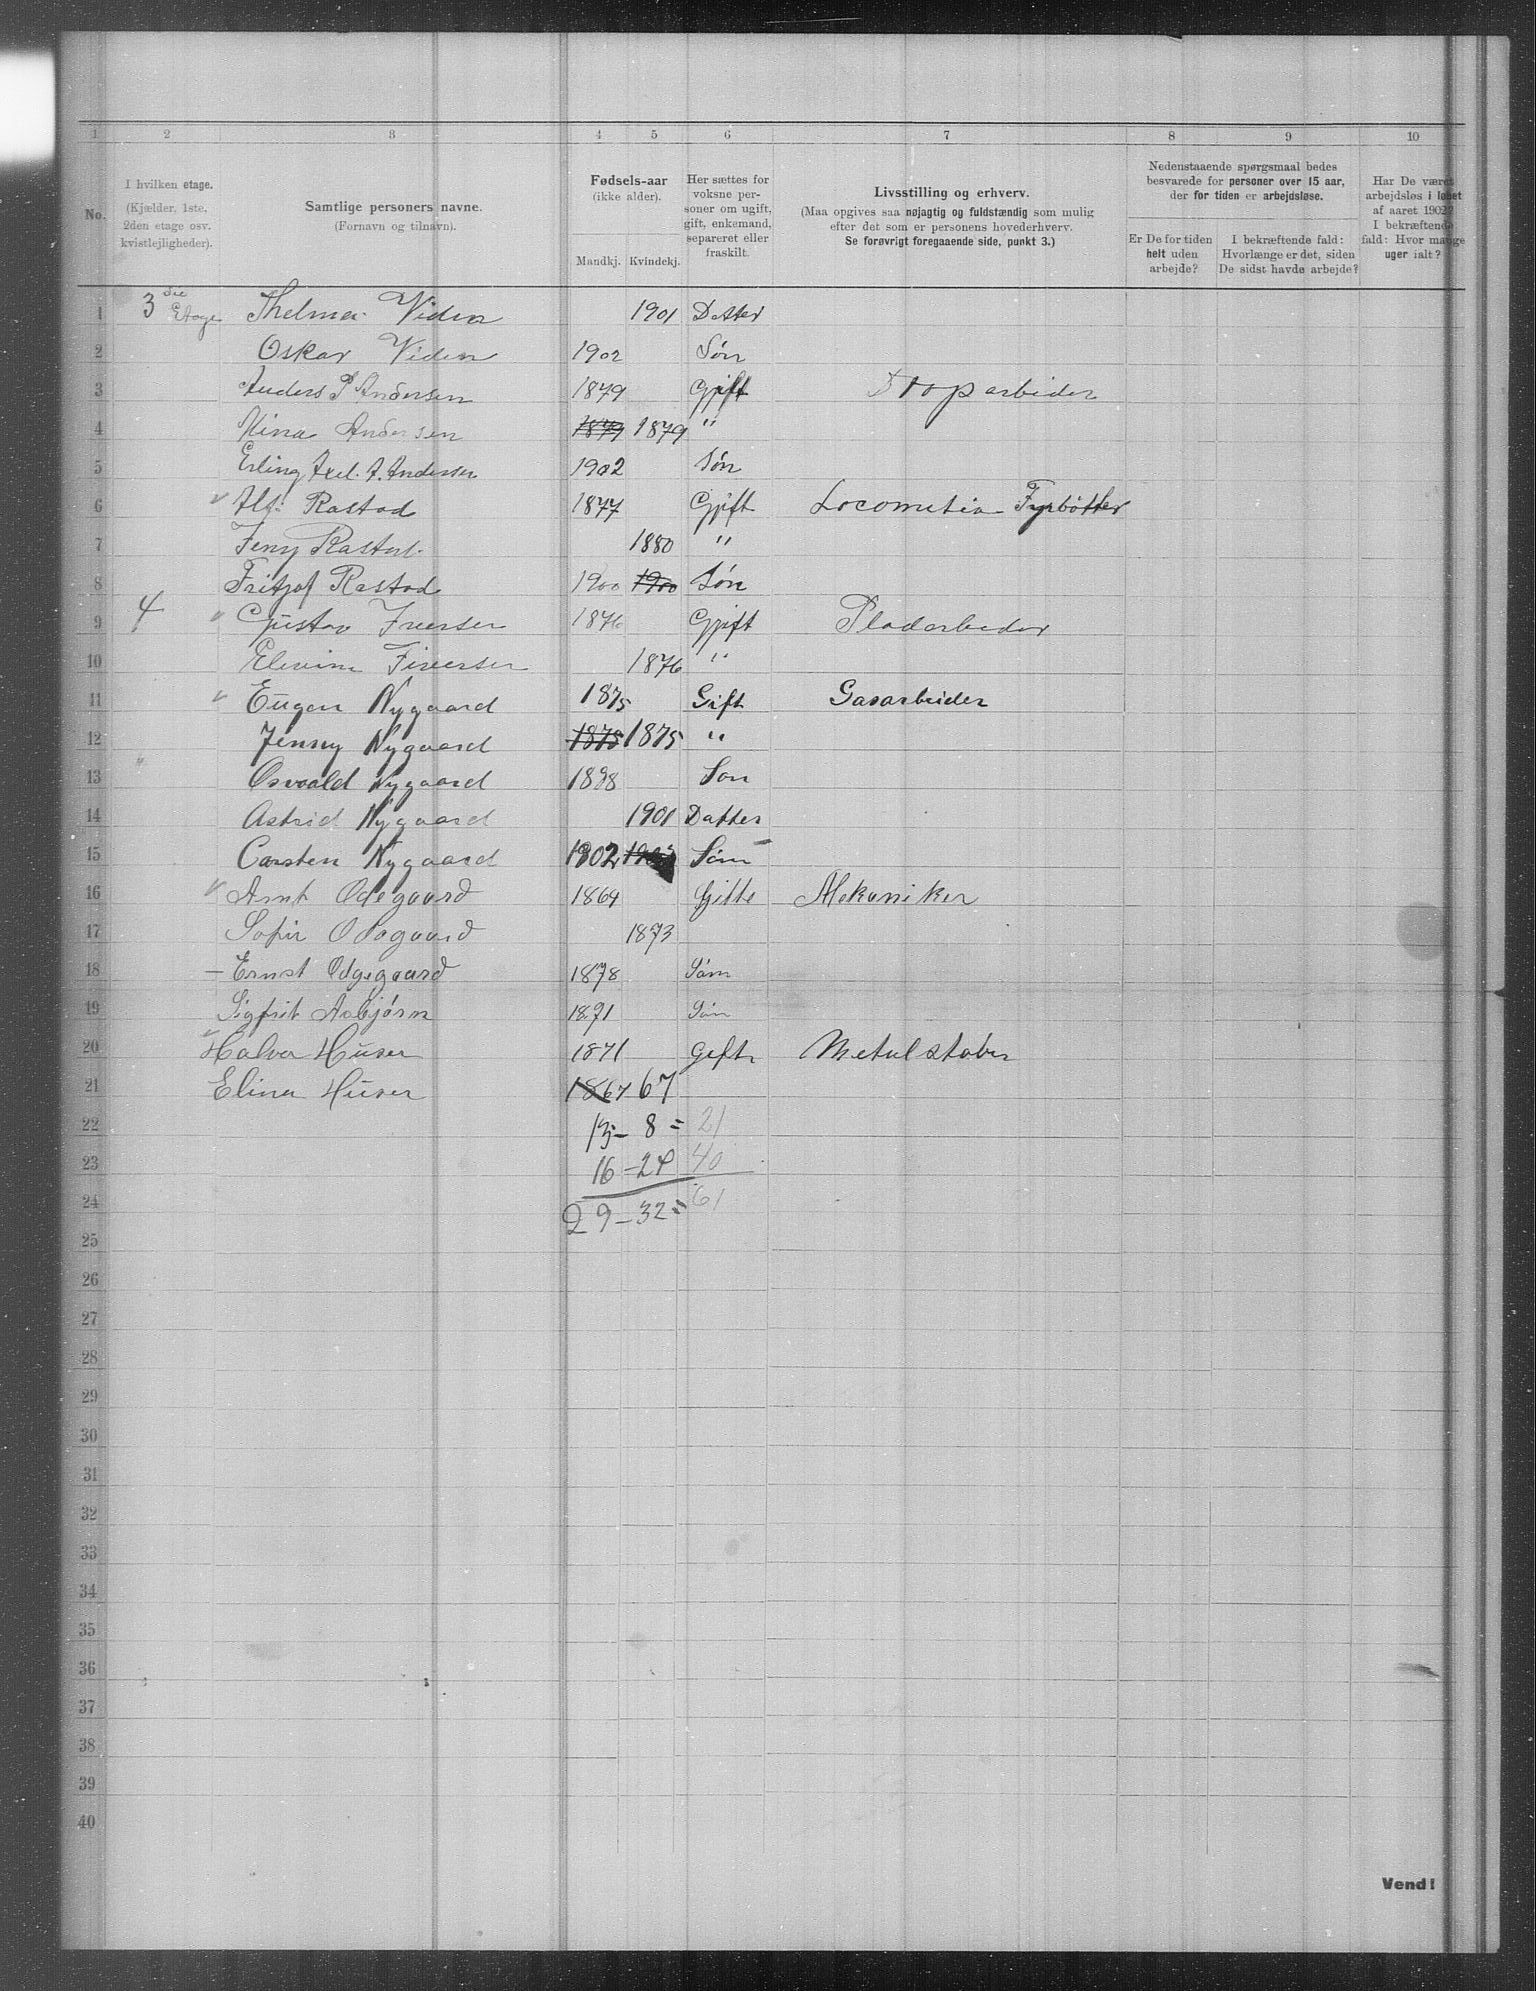 1 2 3 4 5 6 7 8 9 10
No.
I hvilken etage.
(Kjælder, 1ste,
2den etage osv.
kvistlejligheder).
Samtlige personers navne.
(Fornavn og tilnavn).
Fødsels-aar
(ikke alder).
Mandkj. Kvindekj.
Her sættes for
voksne per-
soner om ugift,
gift, enkemand,
separeret eller
fraskilt.
Livsstilling og erhverv.
(Maa opgives saa nøjagtig og fuldstændig som mulig
efter det som er personens hovederhverv.
Se forøvrigt foregaaende side, punkt 3.)
Nedenstaaende spørgsmaal bedes
besvarede for personer over 15 aar,
der for tiden er arbejdsløse.
Er De for tiden
helt uden
arbejde?
I bekræftende fald:
Hvorlænge er det, siden
De sidst havde arbejde?
Har De været
arbejdsløs i løbet
af aaret 1902?
I bekræftende
fald: Hvor mange
uger ialt?
1 3 die Etage Thelma Viden 1901 Datter
2 Oskar Viden 1902 Søn
3 Anders P Andersen 1879 Gjift arbeider
4 Nina Andersen 1879 1879 "
5 Erling Axel. A. Andersen 1902 Søn
6 Alf Rastad 1877 Gjift Locomotiv Fyrbøtter
7 Jeny Rastad. 1880 "
8 Fritjof Rastad 1900 1900 Søn
9 4 Gustav Iversen 1876 Gjift Pladarbeder
10 Iversen 1876 "
11 Eugen Nygaard 1875 Gift Gasarbeider
12 Jenny Nygaard 1875 1875 "
13 " Osvald Nygaard 1898 Son
14 Astrid Nygaard 1901 Datter
15 Carsten Nygaard 1902 1902 Søn
16 Arnt Odegaard 1864 Gifte Mekaniker
17 Sofie Odegaard 1873
18 – Ernst Odgegaard 1898 Søn
19 Sigfrit Asbjørn 1891 Søn
20 Halvor Huser 1871 Gift Metalstøber
21 Elina Huser 1867 67
22 13 – 8 = 21
23 16 – 24 40
24 29 – 32 = 61
25
26
27
28
29
30
31
32
33
34
35
36
37
38
39
40
Vend!